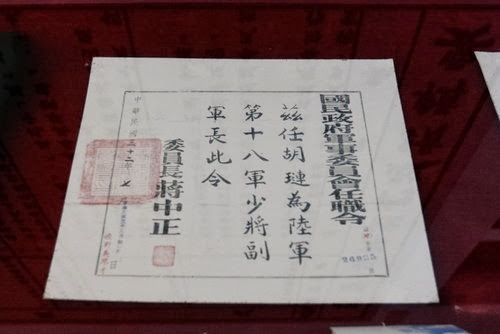 國民政府軍事委員會任職令
茲任胡璉為陸軍
第十八軍少將副
軍長此令
委員長蔣中正
中華民國三十二年七